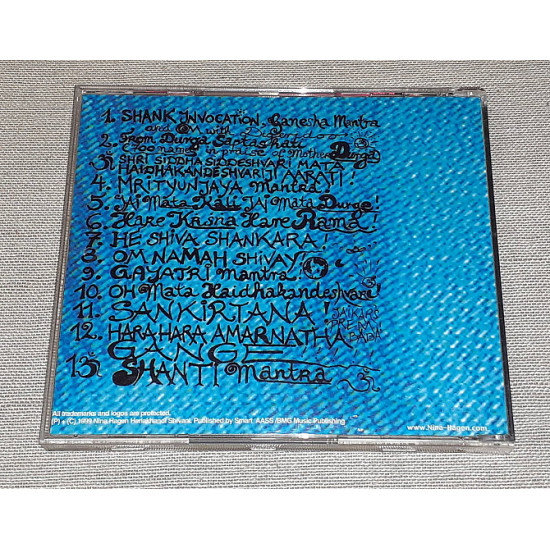 1. SHANK INVOCATION, Ganesha Mantra
and OM with Didgeridoo
2. From Durga Saptashati
(100 names in praise of Mother Durga)
3. SHRI SIDDHA SIDDESHVARI MATA
HAIDHAKANDESHVARI JI AARATI!
4. MRITYUNJAYA Mantra!
5. JAI MATA KALI JAI MATA DURGE!
6. Hare Krsna Hare Rama!
7. HE SHIVA SHANKARA!
8. OM NAMAH SHIVAY!
9. GAYATRI Mantra!
10. OH Mata Haidhakandeshvari!
11. SANKIRTANA!
12. HARA HARA AMARNATHA
GANGE
13. SHANTI Mantra
JAIKARS
PREM
BABA
All trademarks and logos are protected.
(P) + (C) 1999 Nina Hagen Published by Smart AASS /BMG Music Publishing
www.Nina-Hagen.com